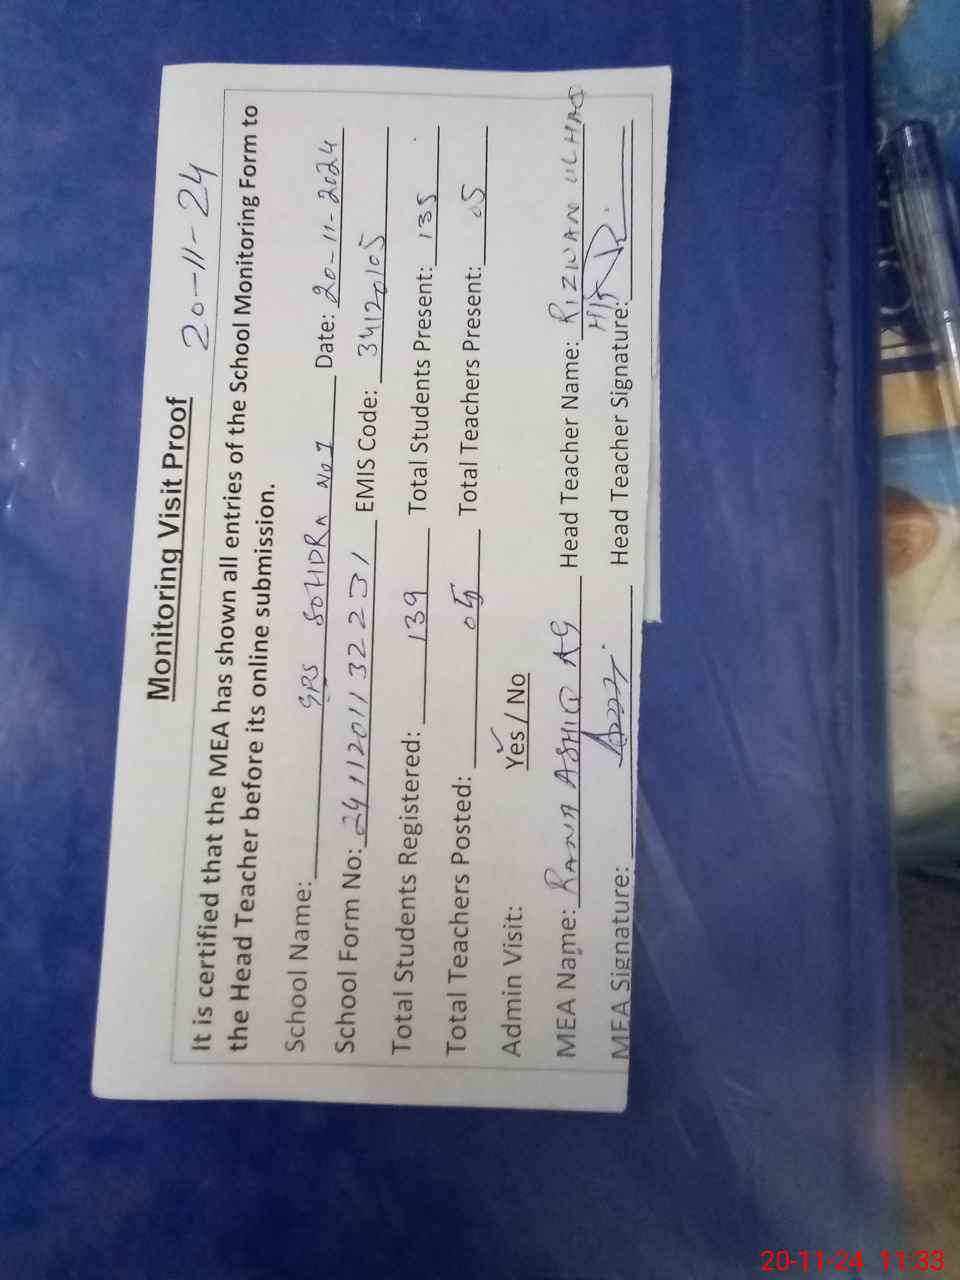 Monitoring Visit Proof 20-11-24
It is certified that the MEA has shown all entries of the School Monitoring Form to
the Head Teacher before its online submission.
School Name: GPS SOHDRA No 1 Date: 20-11-2024
School Form No: 241120113 2231 EMIS Code: 34120105
Total Students Registered: 139 Total Students Present: 135
Total Teachers Posted: 05 Total Teachers Present: 05
Admin Visit: Yes / No
MEA Name: RANA ASHIQ AG Head Teacher Name: RIZWAN UL HAQ
MEA Signature: Head Teacher Signature:
20-11-24 11:33